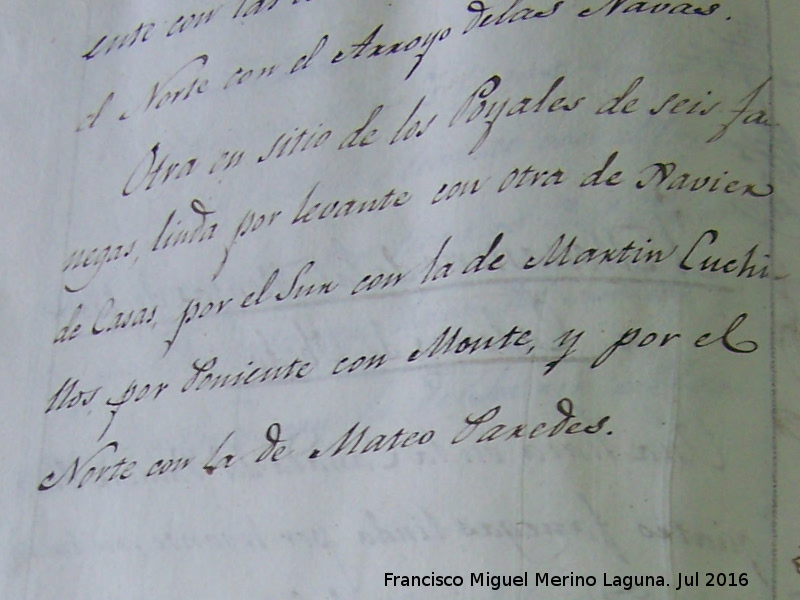 ente con
el Norte con el Arroyo delas Navas.
Otra en sitio de los Poyales de seis fa-
negas, linda por levante con otra de Navier
de Casas, por el Sur con la de Martin Cuchi-
llos, por Poniente con Monte, y por el
Norte con la de Mateo Paredes.
Francisco Miguel Merino Laguna. Jul 2016